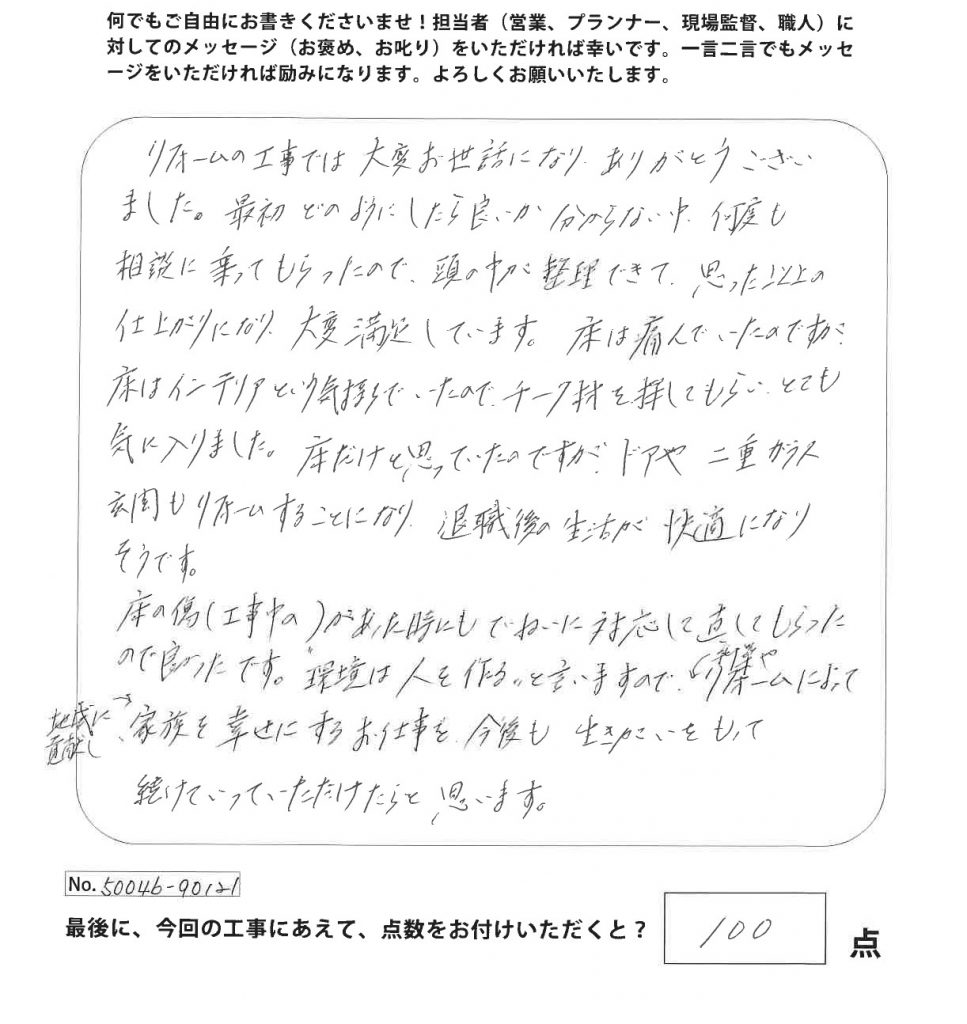 何でもご自由にお書きくださいませ！担当者（営業、プランナー、現場監督、職人）に
対してのメッセージ（お褒め、お叱り）をいただければ幸いです。一言二言でもメッセ
ージをいただければ励みになります。よろしくお願いいたします。
リフォームの工事では大変お世話になり、ありがとうござい
ました。最初どのようにしたら良いか分からない中、何度も
相談に乗ってもらったので、頭の中が整理できて、思った以上の
仕上がりになり、大変満足しています。床は痛んでいたのですが、
床はインテリアという気持ちでいたので、チーク材を探してもらい、とても
気に入りました。床だけと思っていたのですが、ドアや二重ガラス
玄関もリフォームすることになり、退職後の生活が快適になり
そうです。
床の傷（工事中の）があった時にもていねいに対応して直してもらった
ので良かったです。"環境は人を作る"と言いますので、リフォームによって
地域に
貢献し、
家族を幸せにするお仕事を、今後も生きがいをもって
続けていっていただけたらと思います。
No. 50046-90121
最後に、今回の工事にあえて、点数をお付けいただくと？
100
点